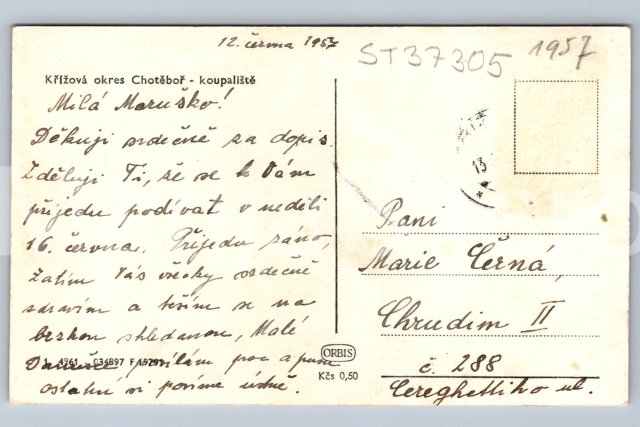 12. června 1957
ST37305 1957
Křížová okres Chotěboř - koupaliště
Milá Maruško!
Děkuji srdečně za dopis.
Zděluji Ti, že se k Vám
přijedu podívat v neděli
16. června. Přijedu ráno,
Zatím Vás všecky srdečně
zdravím a těším se na
brzkou shledanou, Malé
posílám
1 4961 034897
ostatní si povíme ústně.
13
Paní
Marie Černá,
Chrudim II
č. 288
Cereghettiho ul.
ORBIS
Kčs 0,50